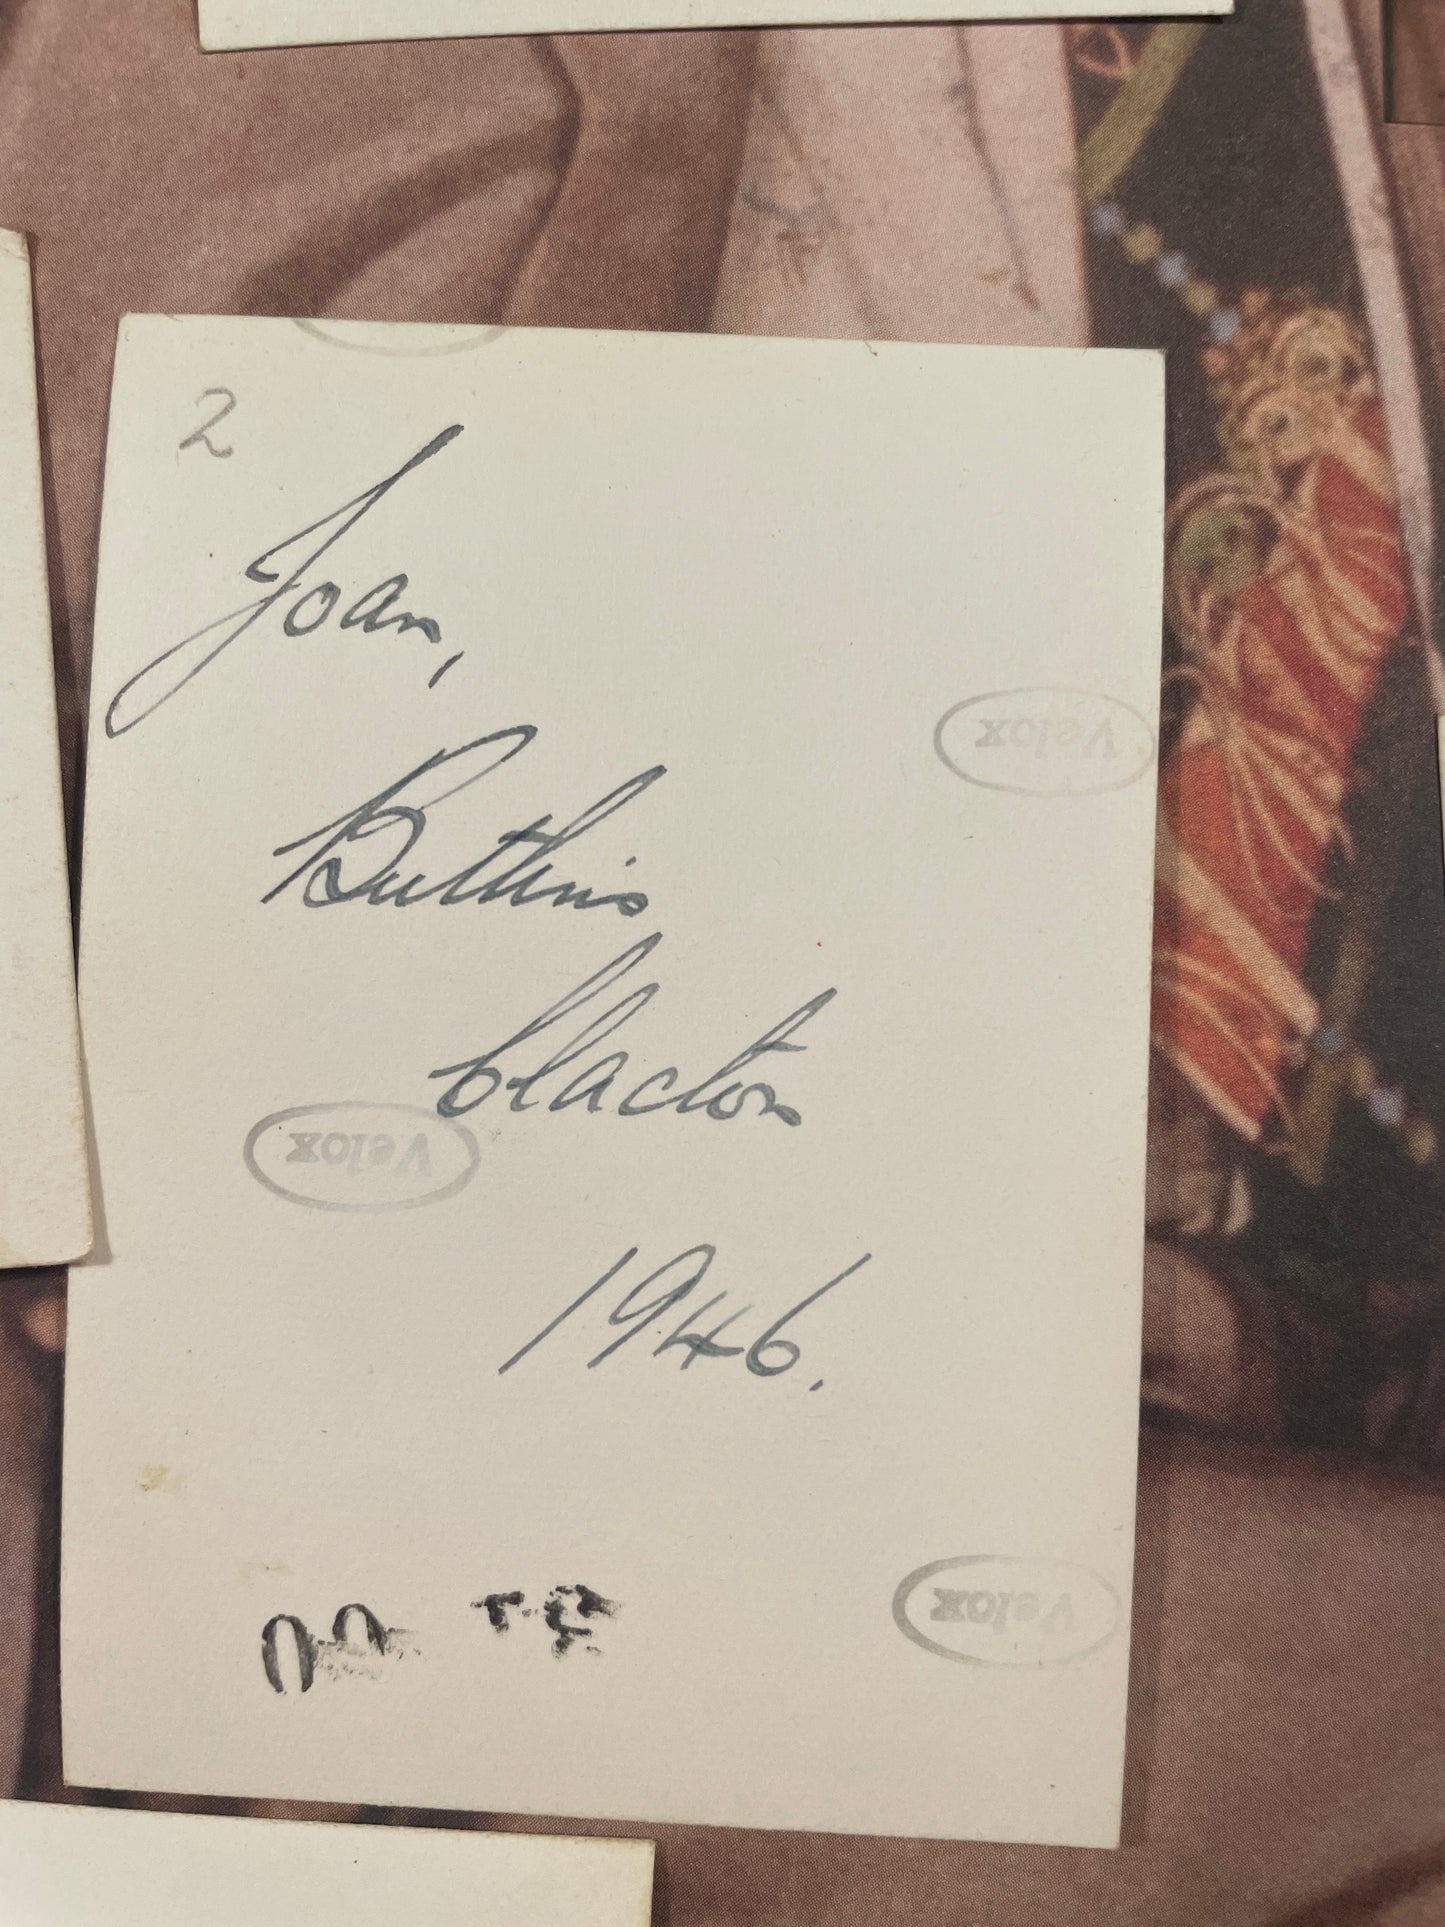 2
Joan,
Butlins
Clacton
1946.
Velox
Velox
Velox